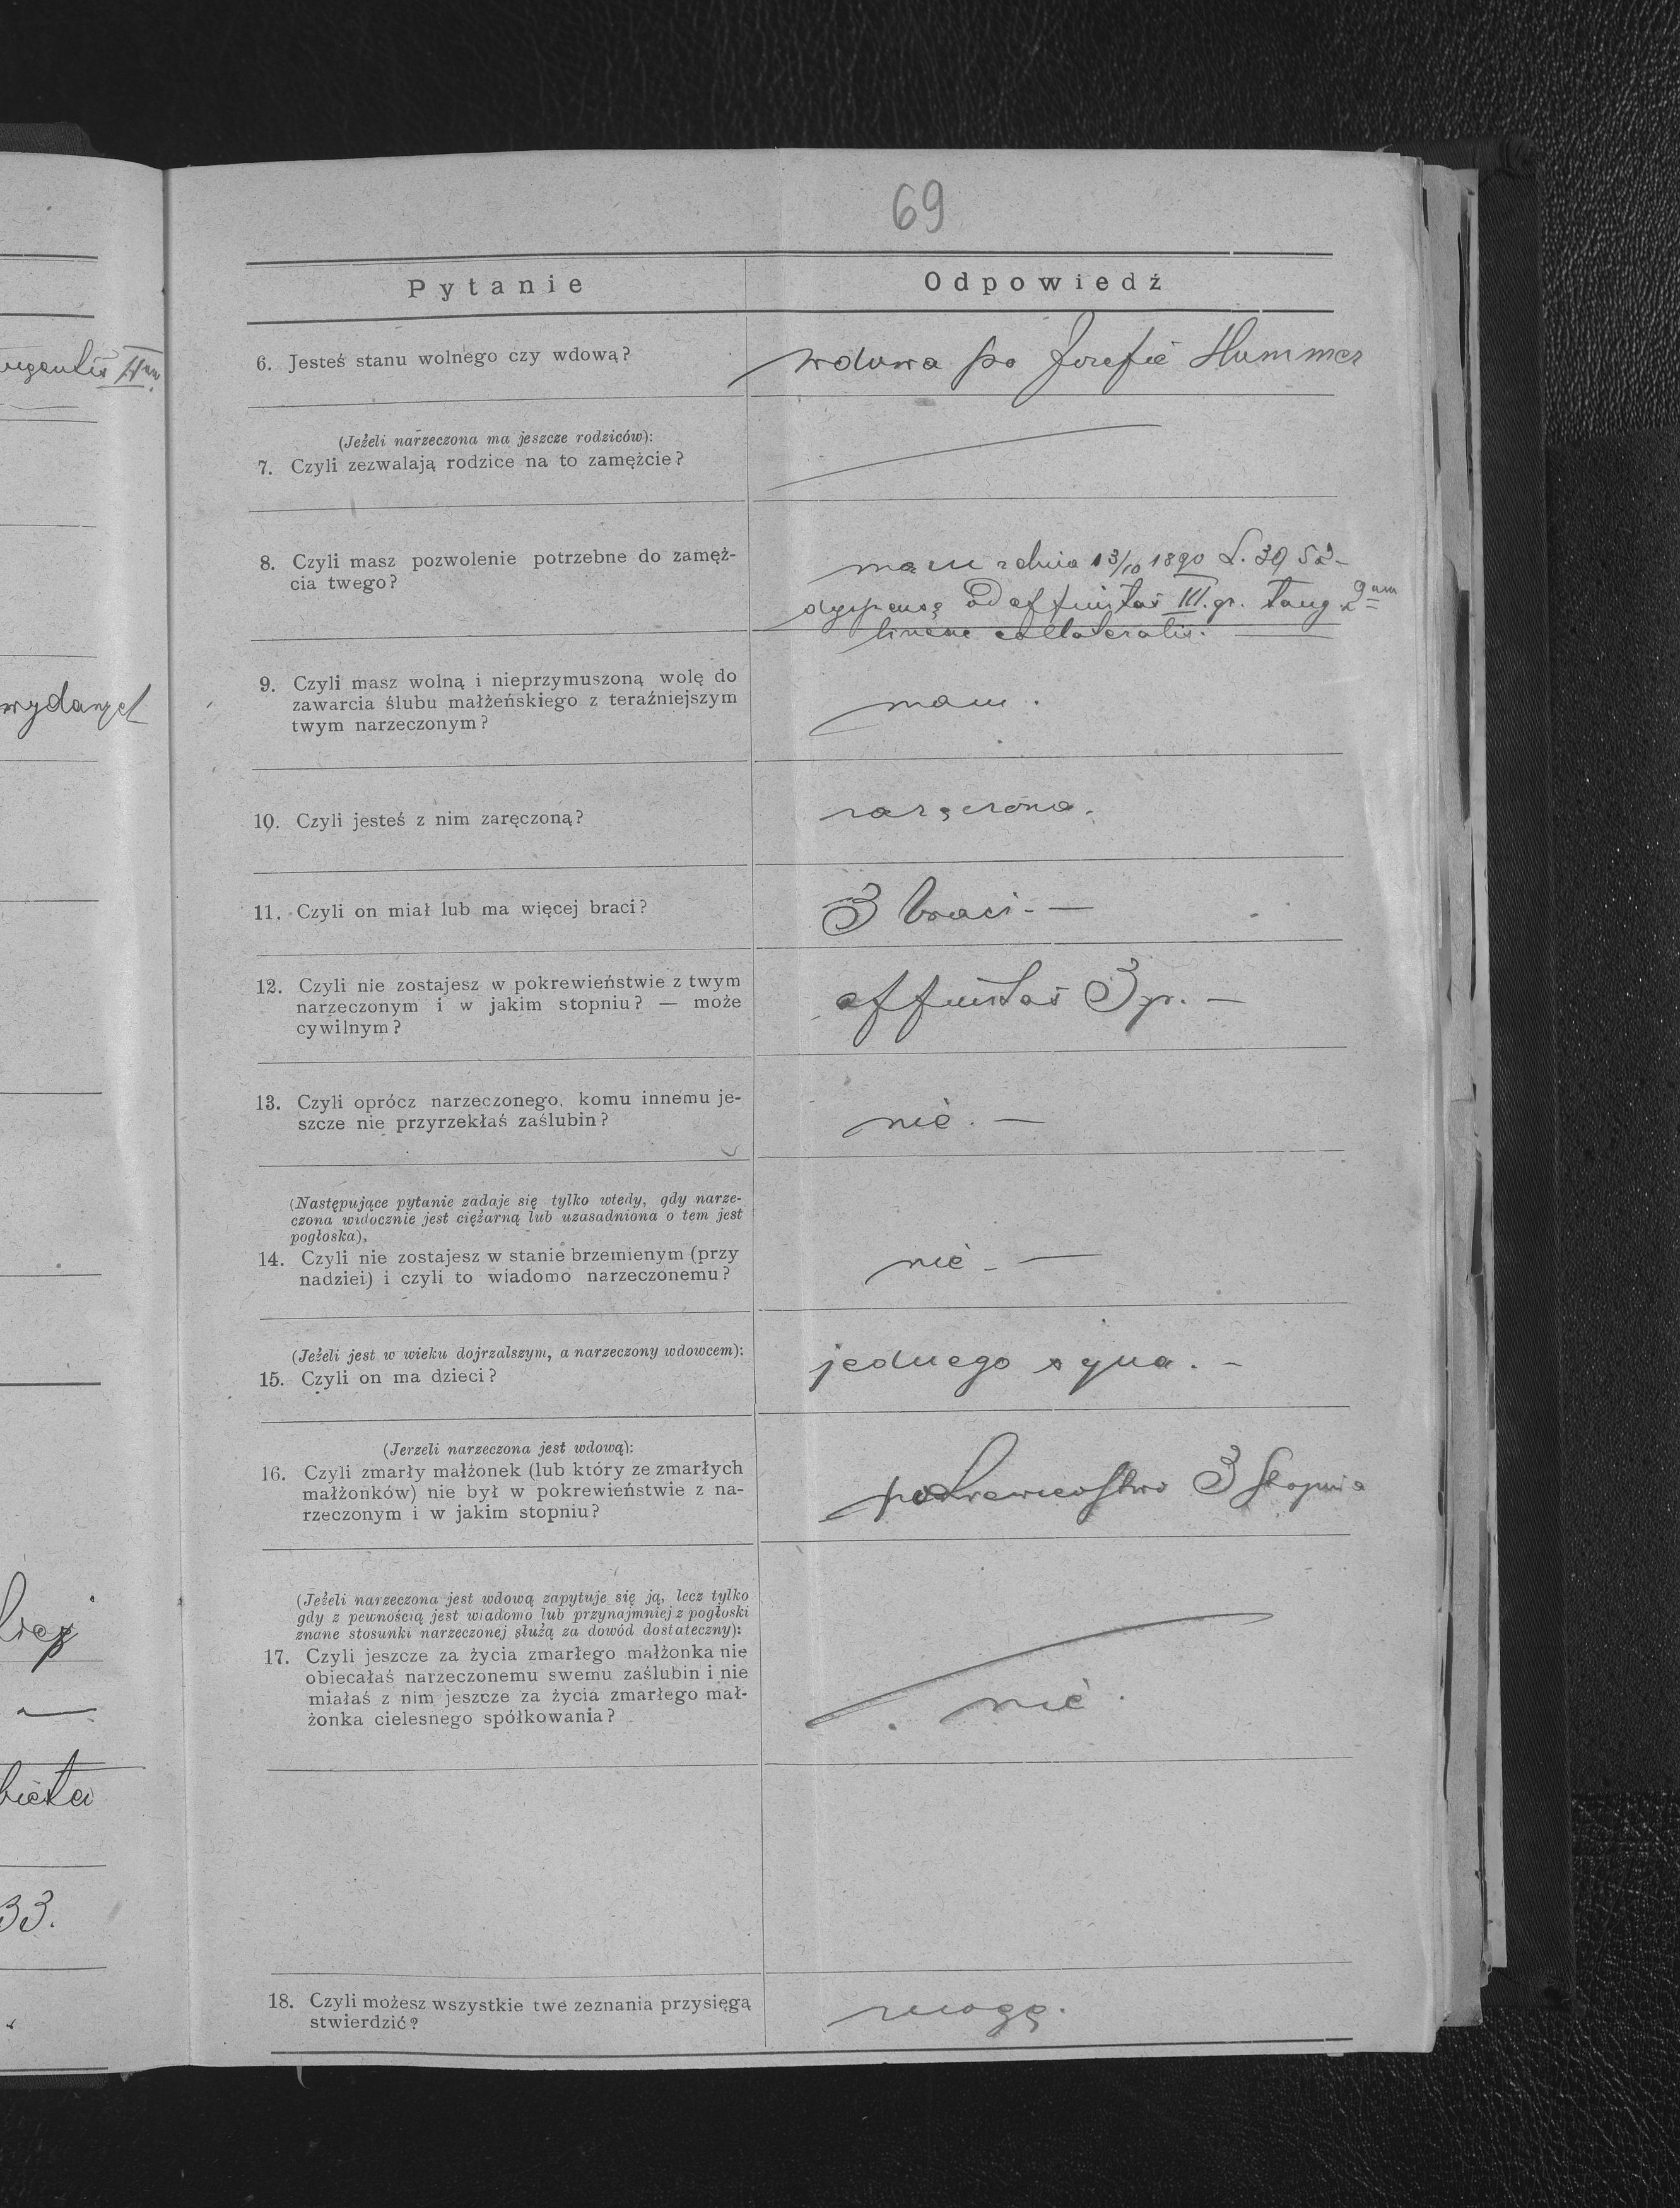 69
Pytanie
Odpowiedź
6. Jesteś stanu wolnego czy wdową?
wdowa po Jozefie Hummer
(Jeżeli narzeczona ma jeszcze rodziców):
7. Czyli zezwalają rodzice na to zamężcie?
8. Czyli masz pozwolenie potrzebne do zamęż-
cia twego?
mam z dnia 13/10 1890 L. 3952
dyspensę ad affinitas III. gr. tang. 2am
lineae collateralis.
9. Czyli masz wolną i nieprzymuszoną wolę do
zawarcia ślubu małżeńskiego z teraźniejszym
twym narzeczonym?
mam.
10. Czyli jesteś z nim zaręczoną?
zaręczona.
11. Czyli on miał lub ma więcej braci?
3 braci. —
12. Czyli nie zostajesz w pokrewieństwie z twym
narzeczonym i w jakim stopniu? — może
cywilnym?
affinitas 3 gr. —
13. Czyli oprócz narzeczonego, komu innemu je-
szcze nie przyrzekłaś zaślubin?
nie. —
(Następujące pytanie zadaje się tylko wtedy, gdy narze-
czona widocznie jest ciężarną lub uzasadniona o tem jest
pogłoska),
14. Czyli nie zostajesz w stanie brzemienym (przy
nadziei) i czyli to wiadomo narzeczonemu?
nie. —
(Jeżeli jest w wieku dojrzalszym, a narzeczony wdowcem):
15. Czyli on ma dzieci?
jednego syna. -
(Jerzeli narzeczona jest wdową):
16. Czyli zmarły małżonek (lub który ze zmarłych
małżonków) nie był w pokrewieństwie z na-
rzeczonym i w jakim stopniu?
pokrewieństwo 3 stopnia
(Jeżeli narzeczona jest wdową zapytuje się ją, lecz tylko
gdy z pewnością jest wiadomo lub przynajmniej z pogłoski
znane stosunki narzeczonej służą za dowód dostateczny):
17. Czyli jeszcze za życia zmarłego małżonka nie
obiecałaś narzeczonemu swemu zaślubin i nie
miałaś z nim jeszcze za życia zmarłego mał-
żonka cielesnego spółkowania?
nie.
18. Czyli możesz wszystkie twe zeznania przysięgą
stwierdzić?
mogę.
wydanych
33.